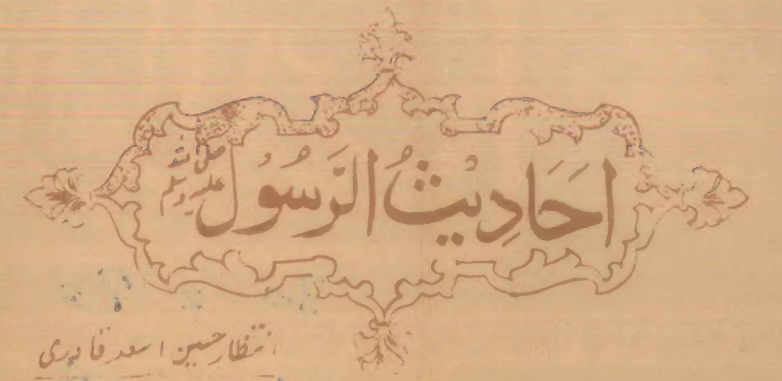 اَحَادِيْثُ الرَسُوْل صلی اللہ علیہ وسلم
انتظار حسین اسعد قادری